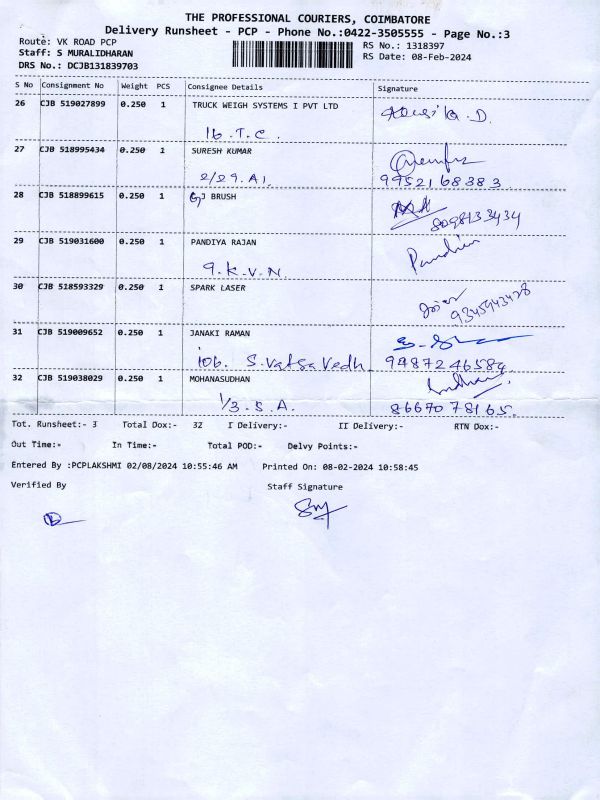 THE PROFESSIONAL COURIERS, COIMBATORE
Delivery Runsheet - PCP - Phone No.:0422-3505555 - Page No.:3
Route: VK ROAD PCP
Staff: S MURALIDHARAN
DRS No.: DCJB131839703
RS No.: 1318397
RS Date: 08-Feb-2024
S No Consignment No Weight PCS Consignee Details Signature
26 CJB 519027899 0.250 1 TRUCK WEIGH SYSTEMS I PVT LTD
16.T.C.
27 CJB 518995434 0.250 1 SURESH KUMAR
2/29.A1. 9952168383
28 CJB 518899615 0.250 1 GJ BRUSH
8098133434
29 CJB 519031600 0.250 1 PANDIYA RAJAN
9.K.V.N. Pandian
30 CJB 518593329 0.250 1 SPARK LASER
9345943428
31 CJB 519009652 0.250 1 JANAKI RAMAN
106. S.Vatsa Vedh 9487246584
32 CJB 519038029 0.250 1 MOHANASUDHAN
1/3.S.A. 8667078165.
Tot. Runsheet:- 3 Total Dox:- 32 I Delivery:- II Delivery:- RTN Dox:-
Out Time:- In Time:- Total POD:- Delvy Points:-
Entered By :PCPLAKSHMI 02/08/2024 10:55:46 AM Printed On: 08-02-2024 10:58:45
Verified By Staff Signature